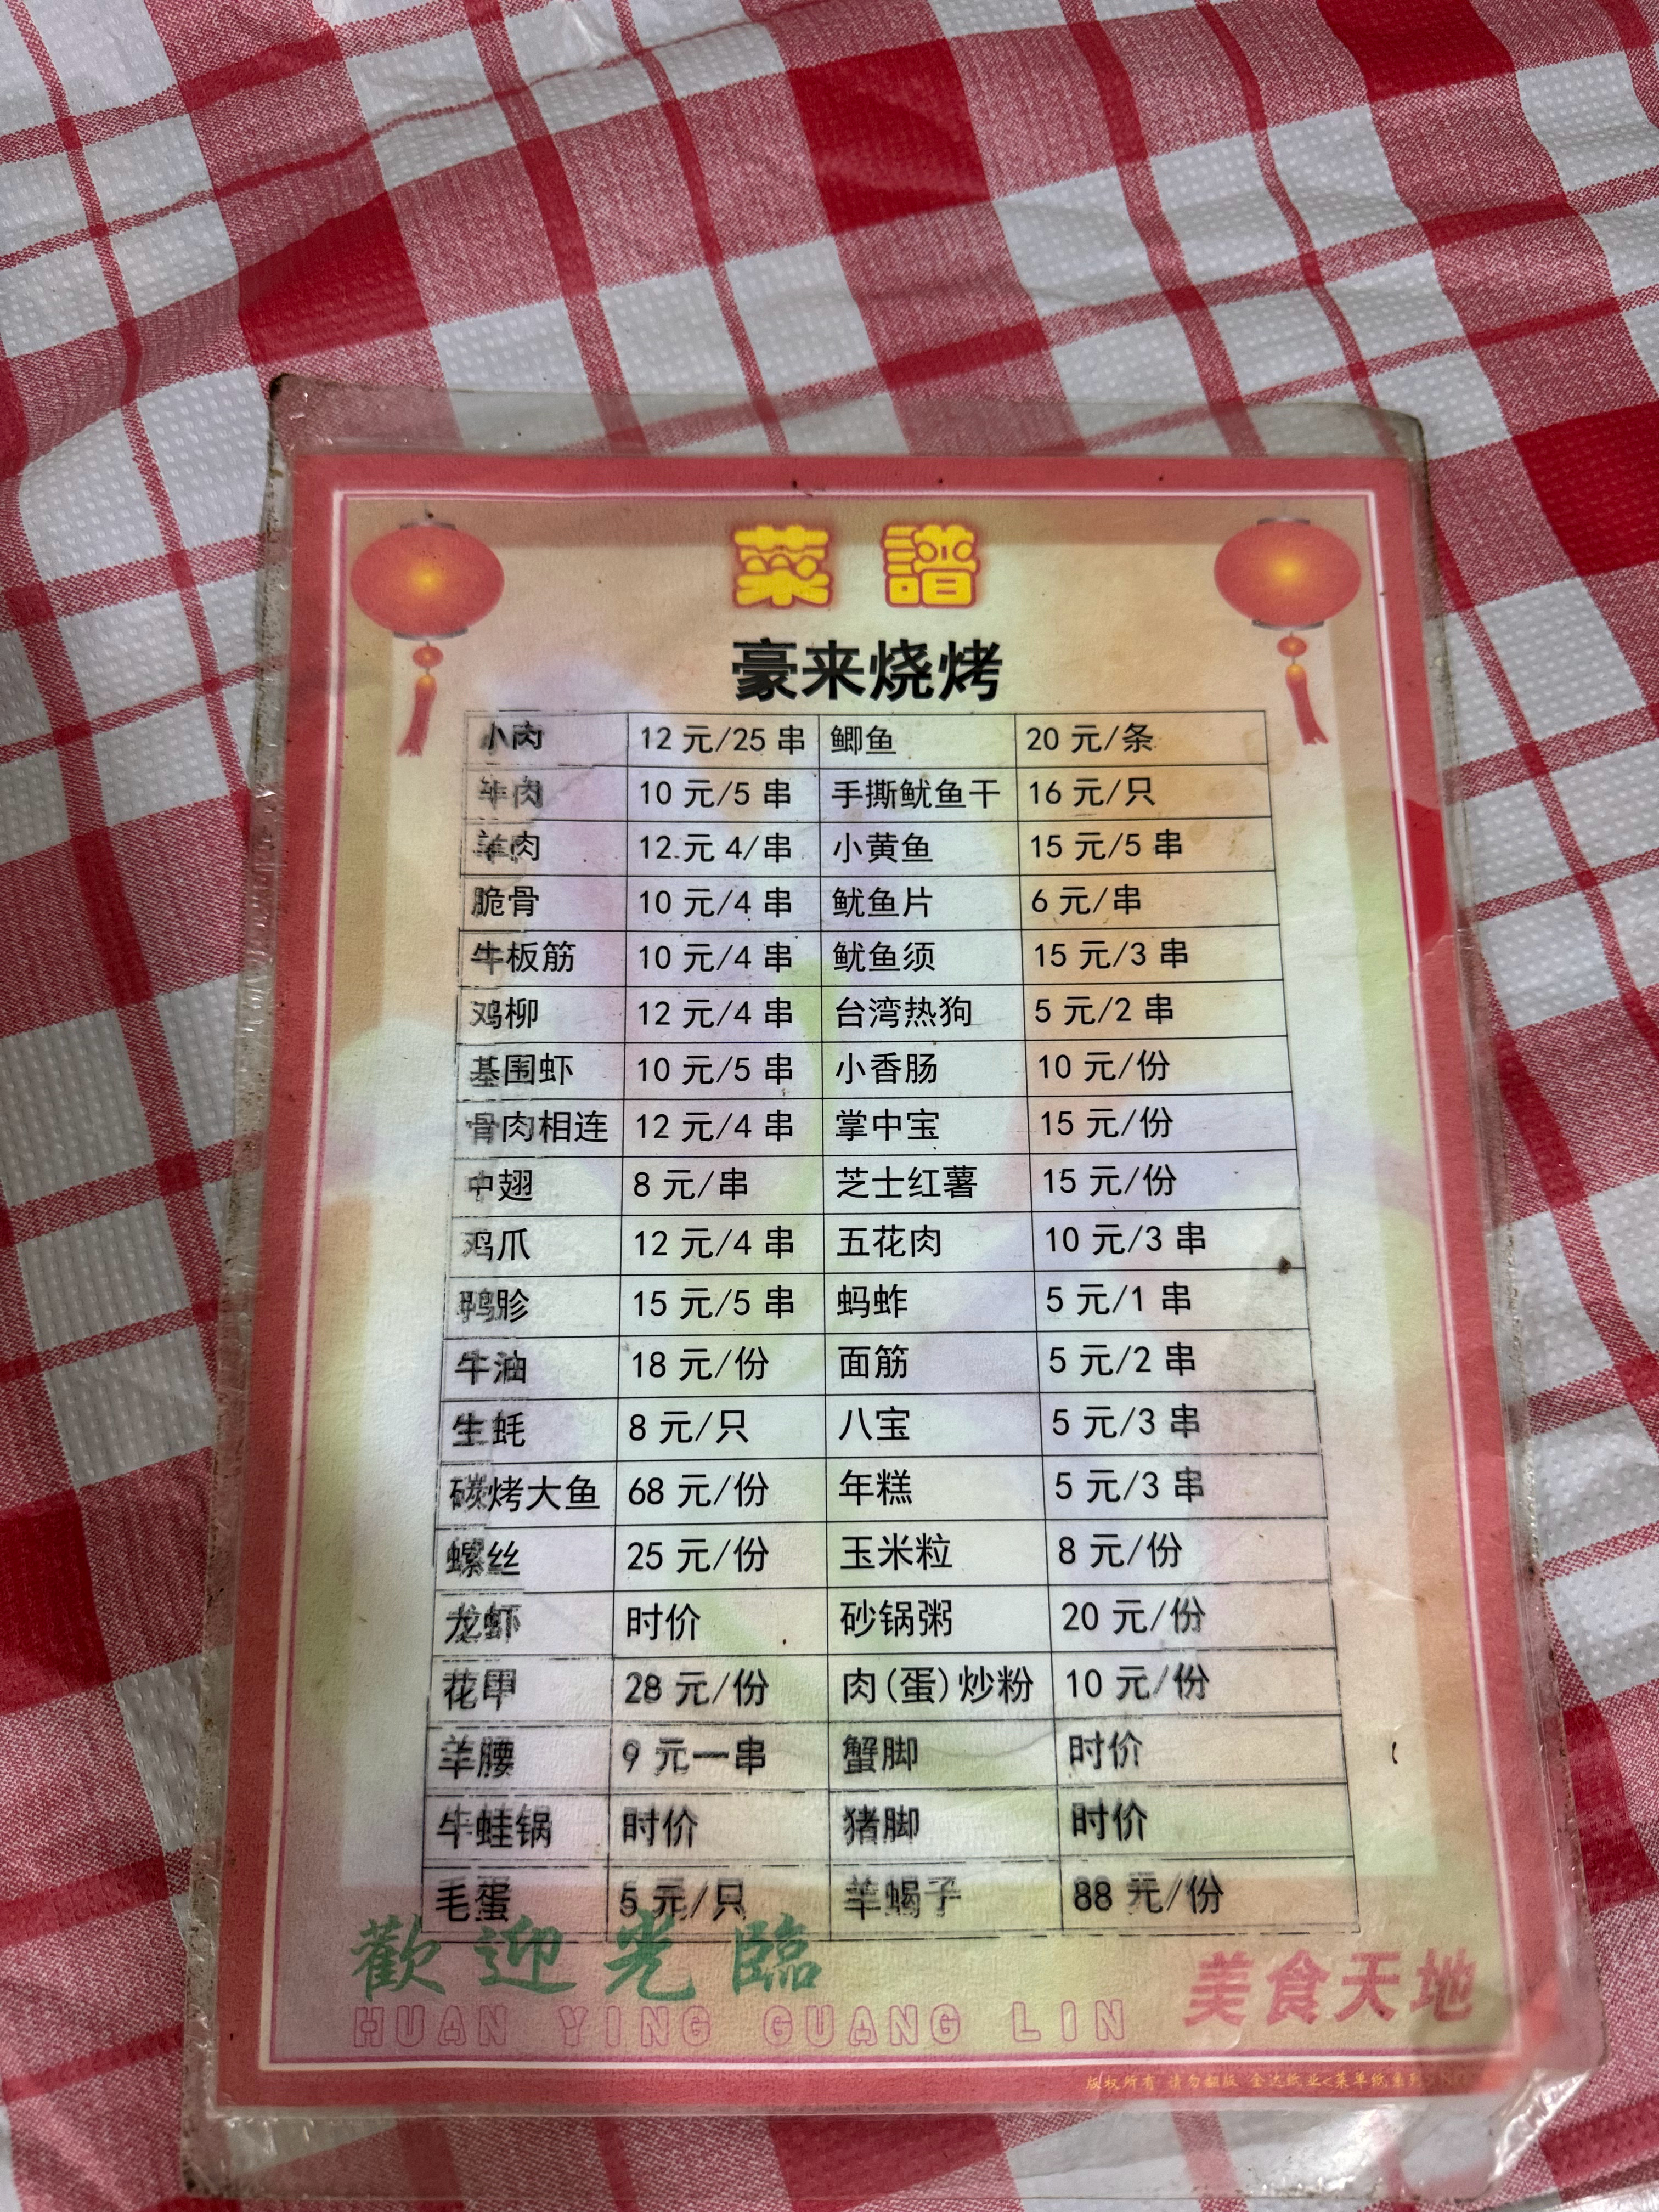 菜譜
豪来烧烤
小肉 12元/25串 鲫鱼 20元/条
牛肉 10元/5串 手撕鱿鱼干 16元/只
羊肉 12.元4/串 小黄鱼 15元/5串
脆骨 10元/4串 鱿鱼片 6元/串
牛板筋 10元/4串 鱿鱼须 15元/3串
鸡柳 12元/4串 台湾热狗 5元/2串
基围虾 10元/5串 小香肠 10元/份
骨肉相连 12元/4串 掌中宝 15元/份
中翅 8元/串 芝士红薯 15元/份
鸡爪 12元/4串 五花肉 10元/3串
鸭胗 15元/5串 蚂蚱 5元/1串
牛油 18元/份 面筋 5元/2串
生蚝 8元/只 八宝 5元/3串
碳烤大鱼 68元/份 年糕 5元/3串
螺丝 25元/份 玉米粒 8元/份
龙虾 时价 砂锅粥 20元/份
花甲 28元/份 肉(蛋)炒粉 10元/份
羊腰 9元一串 蟹脚 时价
牛蛙锅 时价 猪脚 时价
毛蛋 5元/只 羊蝎子 88元/份
歡迎光臨
HUAN YING GUANG LIN
美食天地
版权所有 请勿翻版 金达纸业<菜单纸系列>